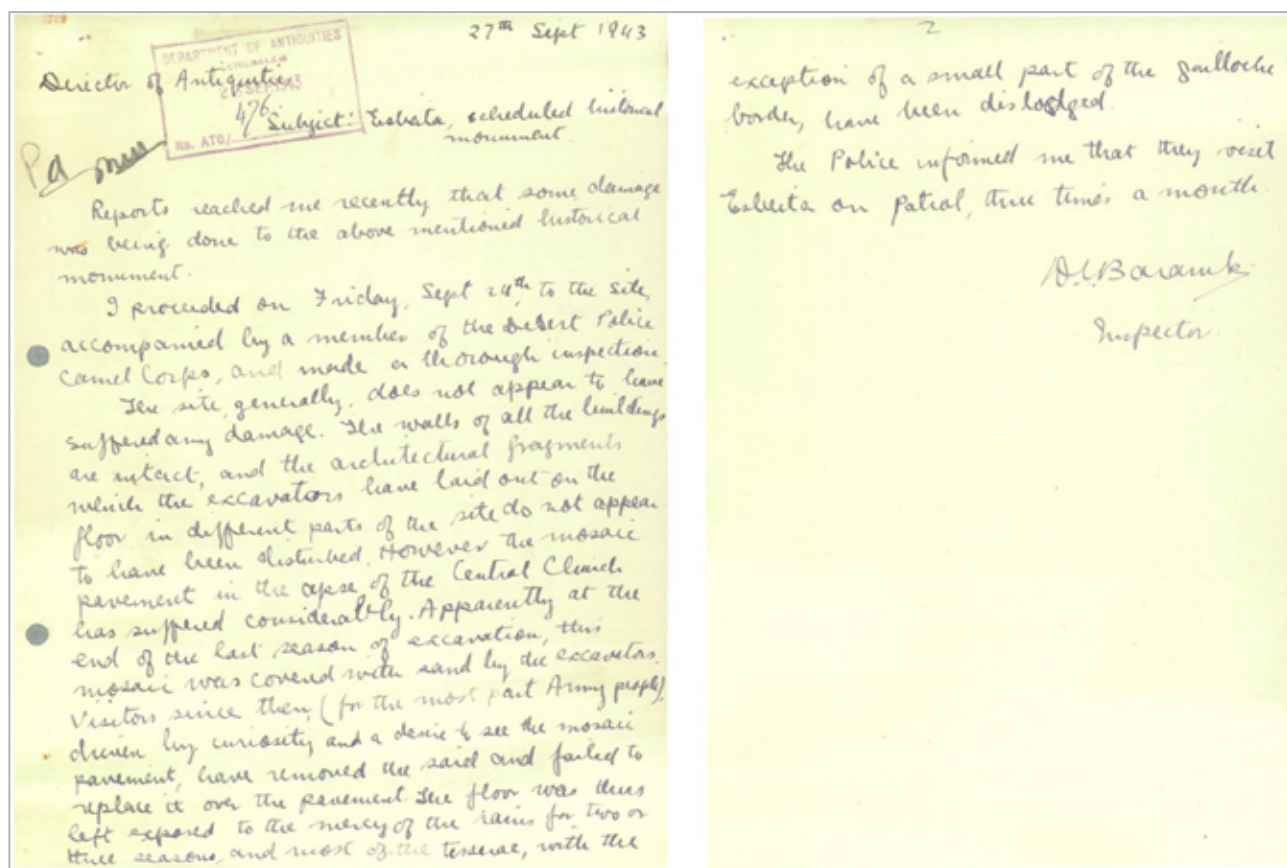 27th Sept 1943
DEPARTMENT OF ANTIQUITIES
JERUSALEM
SEP 1943
No. ATQ/ 476
Director of Antiquities
Subject: Esbeita, scheduled historical
monument.
Reports reached me recently that some damage
was being done to the above mentioned historical
monument.
I proceeded on Friday, Sept 24th, to the site,
accompanied by a member of the Desert Police
Camel Corps, and made a thorough inspection.
The site, generally, does not appear to have
suffered any damage. The walls of all the buildings
are intact, and the architectural fragments
which the excavators have laid out on the
floor in different parts of the site do not appear
to have been disturbed. However the mosaic
pavement in the apse of the Central Church
has suffered considerably. Apparently at the
end of the last season of excavation, this
mosaic was covered with sand by the excavators.
Visitors since then, (for the most part Army people),
driven by curiosity and a desire to see the mosaic
pavement, have removed the said and failed to
replace it over the pavement. The floor was thus
left exposed to the mercy of the rains for two or
three seasons, and most of the tesserae, with the
2
exception of a small part of the guilloche
border, have been dislodged.
The Police informed me that they visit
Esbeita on patrol, three times a month.
D.C. Baramki
Inspector.